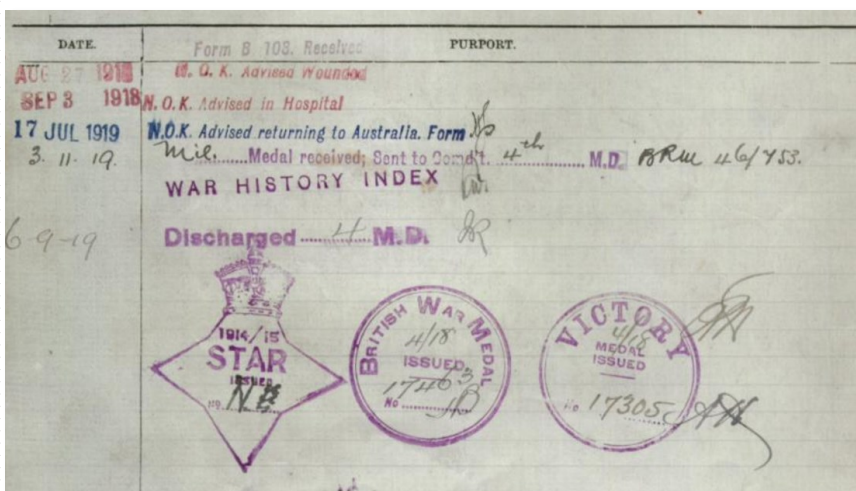 DATE. PURPORT.
Form B 103. Received
AUG 27 1918 N. O. K. Advised Wounded
SEP 3 1918 N.O.K. Advised in Hospital
17 JUL 1919 N.O.K. Advised returning to Australia. Form
3. 11. 19. Mil. Medal received; Sent to Comd't. 4th M.D. BRM 46/753.
WAR HISTORY INDEX
6-9-19 Discharged 4 M.D.
1914/15
STAR
ISSUED
No N.E.
BRITISH WAR MEDAL
4/18
ISSUED
17463
No
VICTORY
4/18
MEDAL
ISSUED
No 17305